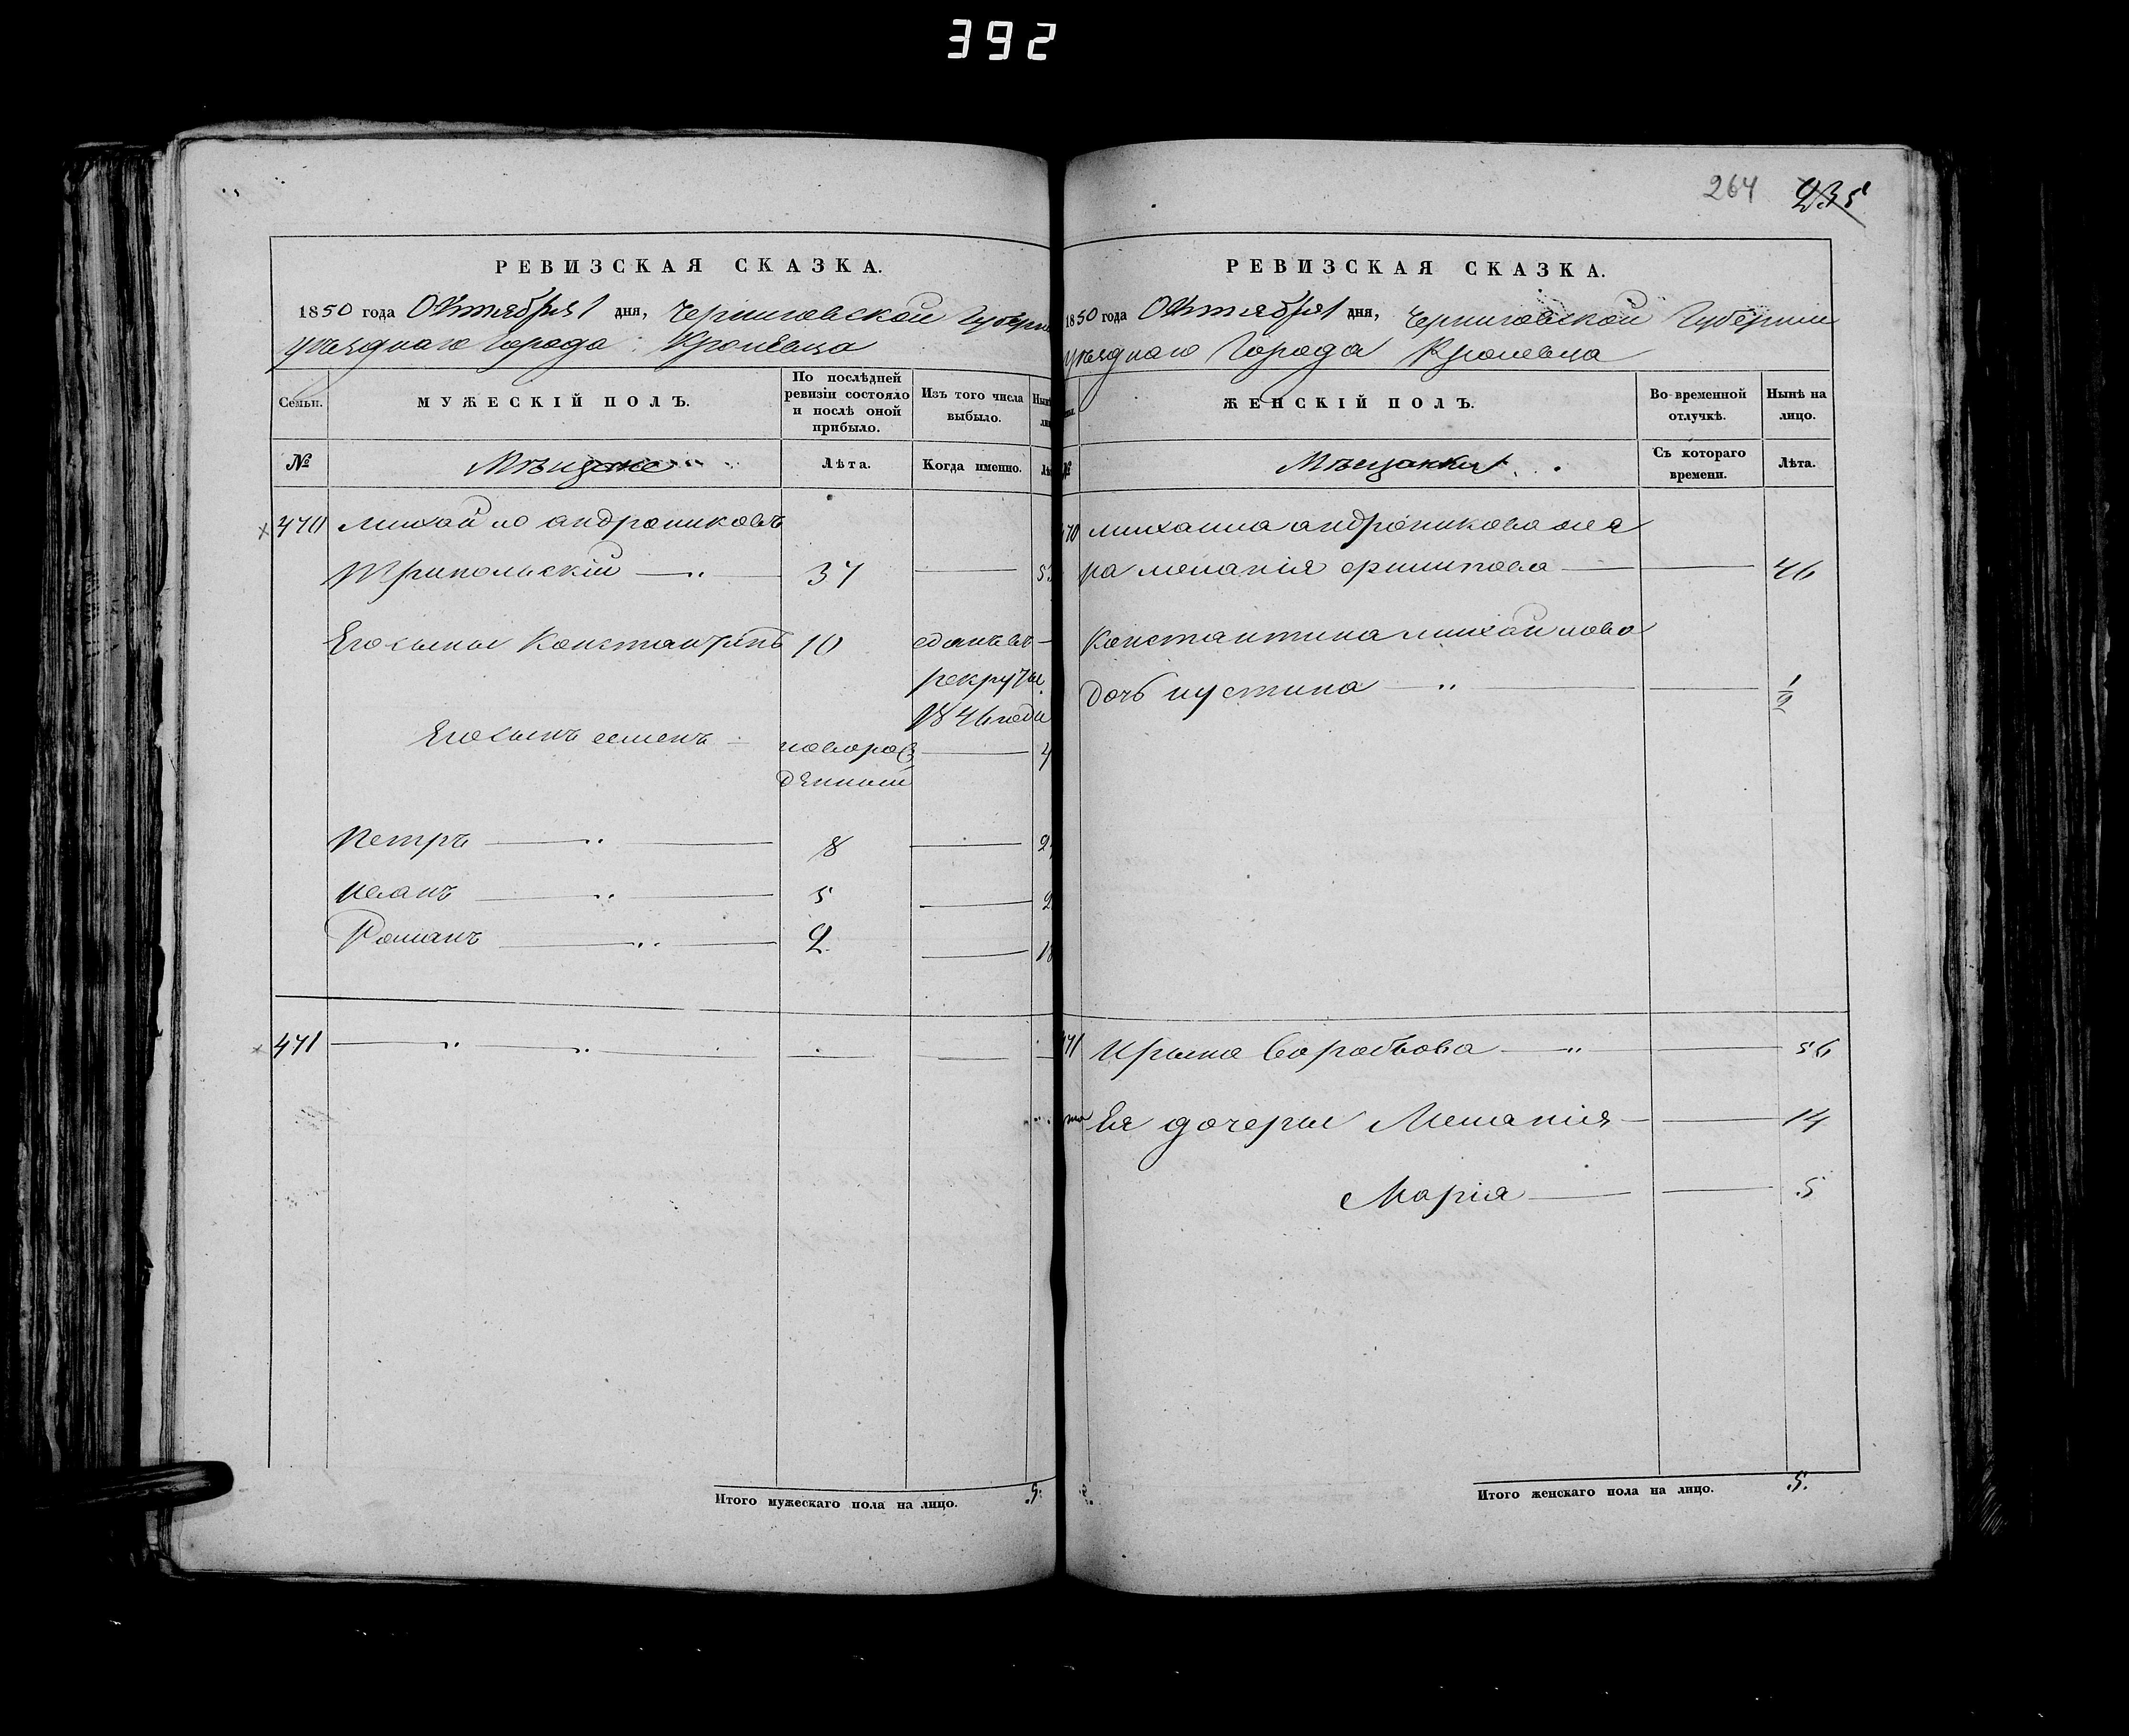 392
РЕВИЗСКАЯ СКАЗКА.
1850 года Октября 1 дня, Черниговской Губерн
уѣзднаго города Кролевца
Семьи.
МУЖЕСКІЙ ПОЛЪ.
По послѣдней ревизіи состояло и послѣ оной прибыло.
Изъ того числа выбыло.
№
Мѣщане
Лѣта.
Когда именно.
470 михайло андрониковъ
Трипольскій 37
Его сыны Константинъ 10 сданъ въ
рекруты
1846 года
Его сынъ семенъ новорож
денный
Петръ 8
иванъ 5
Романъ 2
471
Итого мужескаго пола на лицо. 5.
264 235
РЕВИЗСКАЯ СКАЗКА.
1850 года Октября 1 дня, Черниговской Губерніи
уѣзднаго Города Кролевца
ЖЕНСКІЙ ПОЛЪ.
Во временной отлучкѣ.
Нынѣ на лицо.
Мѣщанки
Съ котораго времени.
Лѣта.
470 михаила андроникова же
на меланія филипова 46
Константина михайлова
дочь иустина 1/2
471 Ирина Воробьова 56
Ея дочери Меланія 14
Марія 5
Итого женскаго пола на лицо. 5.